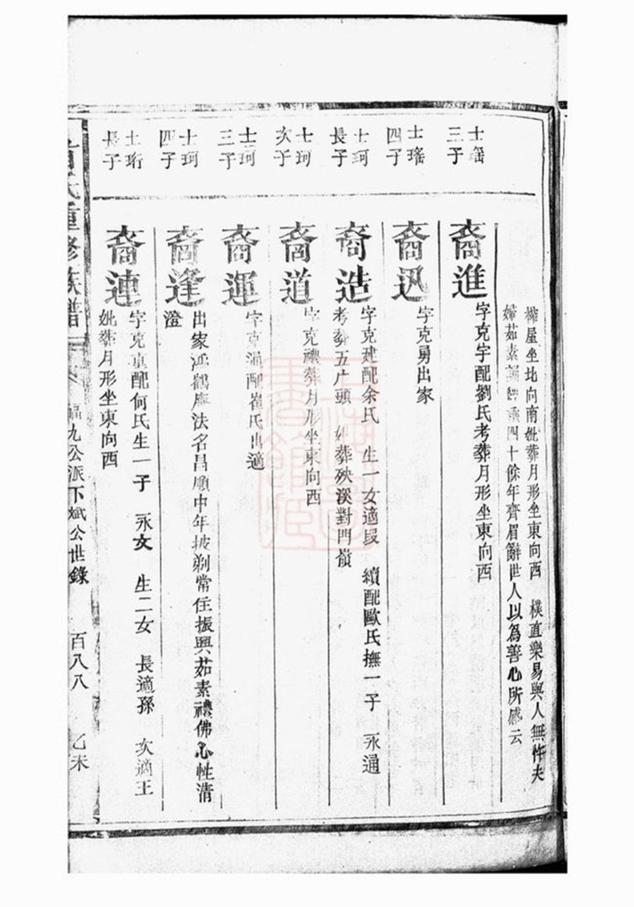 榨屋坐北向南妣葬月形坐東向西 樸直樂易與人無忤夫
婦茹素誦經四十餘年齊眉辭世人以為善心所感云
士瑤
三子
裔進
字克宇配劉氏考葬月形坐東向西
士瑤
四子
裔迅
字克勇出家
士珂
長子
裔造
字克建配余氏 生一女適段 續配歐氏撫一子 永通
考葬五广頭 妣葬殃溪對門嶺
士珂
次子
裔道
字克禮葬月形坐東向西
士珂
三子
裔運
字克 配崔氏出適
士珂
四子
裔逢
出家 鶴庵法名昌順中年披剃常住振興茹素禮佛心性清
澄
士珩
長子
裔連
字克 配何氏生一子 永文 生二女 長適孫 次適王
妣葬月形坐東向西
氏重修族譜
福九公派下斌公世錄
百八八
乙未